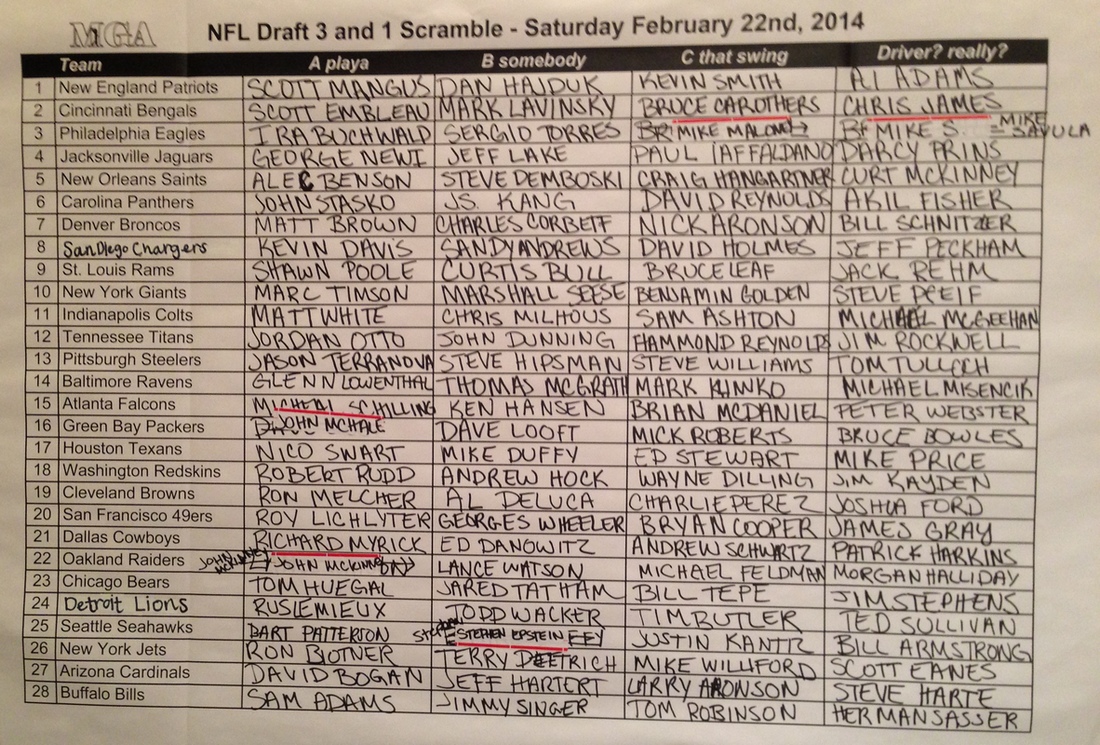 MGA NFL Draft 3 and 1 Scramble - Saturday February 22nd, 2014
Team A playa B somebody C that swing Driver? really?
1 New England Patriots SCOTT MANGUS DAN HAJDUK KEVIN SMITH AL ADAMS
2 Cincinnati Bengals SCOTT EMBLEAU MARK LAVINSKY BRUCE CAROTHERS CHRIS JAMES
3 Philadelphia Eagles IRA BUCHWALD SERGIO TORRES MIKE MALONE MIKE S. = MIKE SAVULA
4 Jacksonville Jaguars GEORGE NEWI JEFF LAKE PAUL IAFFALDANO DARCY PRINS
5 New Orleans Saints ALEC BENSON STEVE DEMBOSKI CRAIG HANGARTNER CURT MCKINNEY
6 Carolina Panthers JOHN STASKO JS. KANG DAVID REYNOLDS AKIL FISHER
7 Denver Broncos MATT BROWN CHARLES CORBETT NICK ARONSON BILL SCHNITZER
8 San Diego Chargers KEVIN DAVIS SANDY ANDREWS DAVID HOLMES JEFF PECKHAM
9 St. Louis Rams SHAWN POOLE CURTIS BULL BRUCE LEAF JACK REHM
10 New York Giants MARC TIMSON MARSHALL SEESE BENJAMIN GOLDEN STEVE PFEIF
11 Indianapolis Colts MATT WHITE CHRIS MILHOUS SAM ASHTON MICHAEL MCGEEHAN
12 Tennessee Titans JORDAN OTTO JOHN DUNNING HAMMOND REYNOLDS JIM ROCKWELL
13 Pittsburgh Steelers JASON TERRANOVA STEVE HIPSMAN STEVE WILLIAMS TOM TULLOCH
14 Baltimore Ravens GLENN LOWENTHAL THOMAS MCGRATH MARK KLINKO MICHAEL MISENCIK
15 Atlanta Falcons MICHEAL SCHILLING KEN HANSEN BRIAN MCDANIEL PETER WEBSTER
16 Green Bay Packers JOHN MCHALE DAVE LOOFT MICK ROBERTS BRUCE BOWLES
17 Houston Texans NICO SWART MIKE DUFFY ED STEWART MIKE PRICE
18 Washington Redskins ROBERT RUDD ANDREW HOCK WAYNE DILLING JIM KAYDEN
19 Cleveland Browns RON MELCHER AL DELUCA CHARLIE PEREZ JOSHUA FORD
20 San Francisco 49ers ROY LICHLYTER GEORGES WHEELER BRYAN COOPER JAMES GRAY
21 Dallas Cowboys RICHARD MYRICK ED DANOWITZ ANDREW SCHWARTZ PATRICK HARKINS
22 Oakland Raiders JOHN JOHN MCKINNEY LANCE WATSON MICHAEL FELDMAN MORGAN HALLIDAY
23 Chicago Bears TOM HUEGAL JARED TATHAM BILL TEPE JIM STEPHENS
24 Detroit Lions RUSLEMIEUX TODD WACKER TIM BUTLER TED SULLIVAN
25 Seattle Seahawks BART PATTERSON STEPHEN EPSTEIN JUSTIN KANTR BILL ARMSTRONG
26 New York Jets RON BIOTNER TERRY DIETRICH MIKE WILLIFORD SCOTT EANES
27 Arizona Cardinals DAVID BOGAN JEFF HARTERT LARRY ARONSON STEVE HARTE
28 Buffalo Bills SAM ADAMS JIMMY SINGER TOM ROBINSON HERMAN SASSER